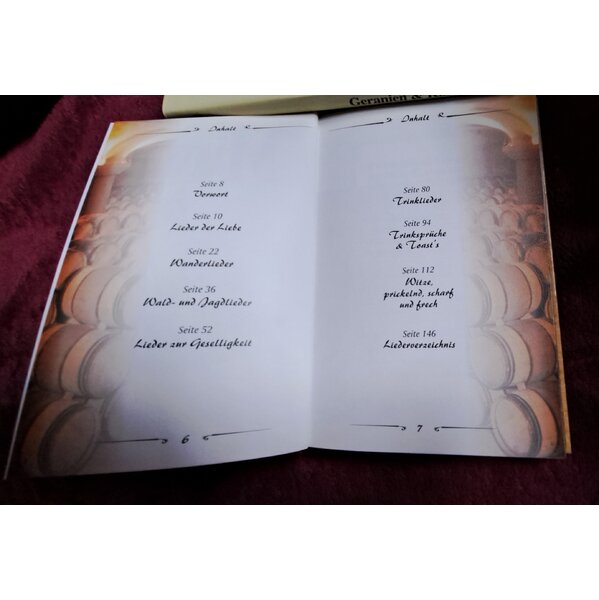 Geranien &
Inhalt
Seite 8
Vorwort
Seite 10
Lieder der Liebe
Seite 22
Wanderlieder
Seite 36
Wald- und Jagdlieder
Seite 52
Lieder zur Geselligkeit
6
Inhalt
Seite 80
Trinklieder
Seite 94
Trinksprüche
& Toast's
Seite 112
Witze,
prickelnd, scharf
und frech
Seite 146
Liederverzeichnis
7